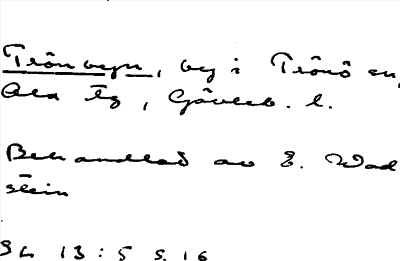 Trönbyn, by i Trönö sn,
Ala tg, Gävleb. l.
Behandlad av E. Wad
stein
SL 13:5 s. 16